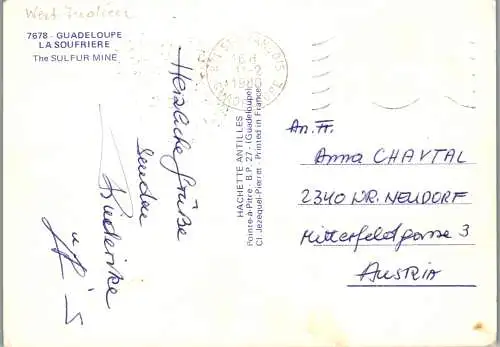 West Indien
7678 - GUADELOUPE
LA SOUFRIERE
The SULFUR MINE
971 ST FRANCOIS
16 H
11-2
1980
GUADELOUPE
Herzliche Grüße
senden
Friederike
u.
HACHETTE ANTILLES
Pointe-à-Pitre - B.P. 27 - (Guadeloupe)
Cl. Jezequel-Pierrit - Printed in France
An. Fr.
Anna CHAVTAL
2340 WR. NEUDORF
Mitterfeldgasse 3
AUSTRIA